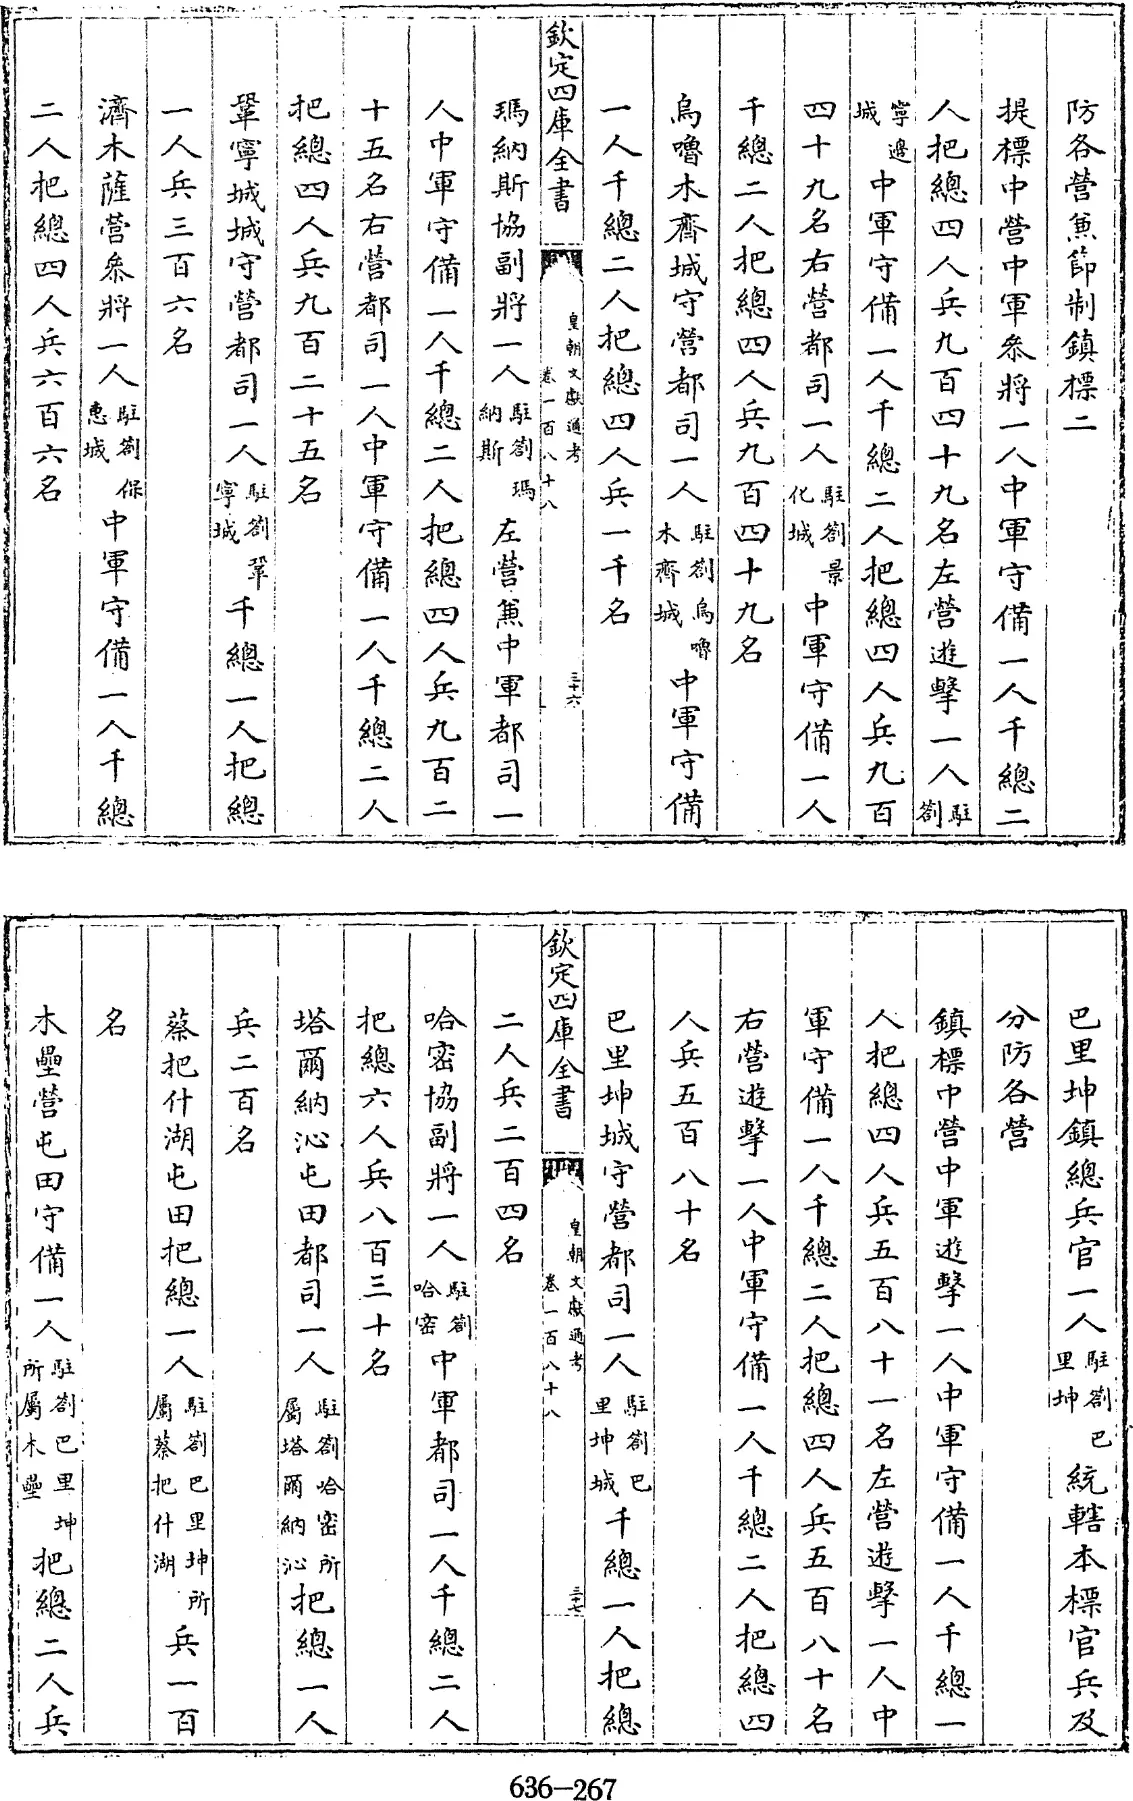 防各營兼節制鎮標二
提標中營中軍叅將一人中軍守備一人千總二
人把總四人兵九百四十九名左營遊擊一人駐劄
寧邊城中軍守備一人千總二人把總四人兵九百
四十九名右營都司一人駐劄景化城中軍守備一人
千總二人把總四人兵九百四十九名
烏嚕木齊城守營都司一人駐劄烏嚕木齊城中軍守備
一人千總二人把總四人兵一千名
欽定四庫全書
皇朝文獻通考
卷一百八十八
三十六
瑪納斯協副將一人駐劄瑪納斯左營兼中軍都司一
人中軍守備一人千總二人把總四人兵九百二
十五名右營都司一人中軍守備一人千總二人
把總四人兵九百二十五名
鞏寧城城守營都司一人駐劄鞏寧城千總一人把總
一人兵三百六名
濟木薩營叅將一人駐劄保惠城中軍守備一人千總
二人把總四人兵六百六名
巴里坤鎮總兵官一人駐劄巴里坤統轄本標官兵及
分防各營
鎮標中營中軍遊擊一人中軍守備一人千總一
人把總四人兵五百八十一名左營遊擊一人中
軍守備一人千總二人把總四人兵五百八十名
右營遊擊一人中軍守備一人千總二人把總四
人兵五百八十名
巴里坤城守營都司一人駐劄巴里坤城千總一人把總
欽定四庫全書
皇朝文獻通考
卷一百八十八
三十七
二人兵二百四名
哈密協副將一人駐劄哈密中軍都司一人千總二人
把總六人兵八百三十名
塔爾納沁屯田都司一人駐劄哈密所屬塔爾納沁把總一人
兵二百名
蔡把什湖屯田把總一人駐劄巴里坤所屬蔡把什湖兵一百
名
木壘營屯田守備一人駐劄巴里坤所屬木壘把總二人兵
636-267